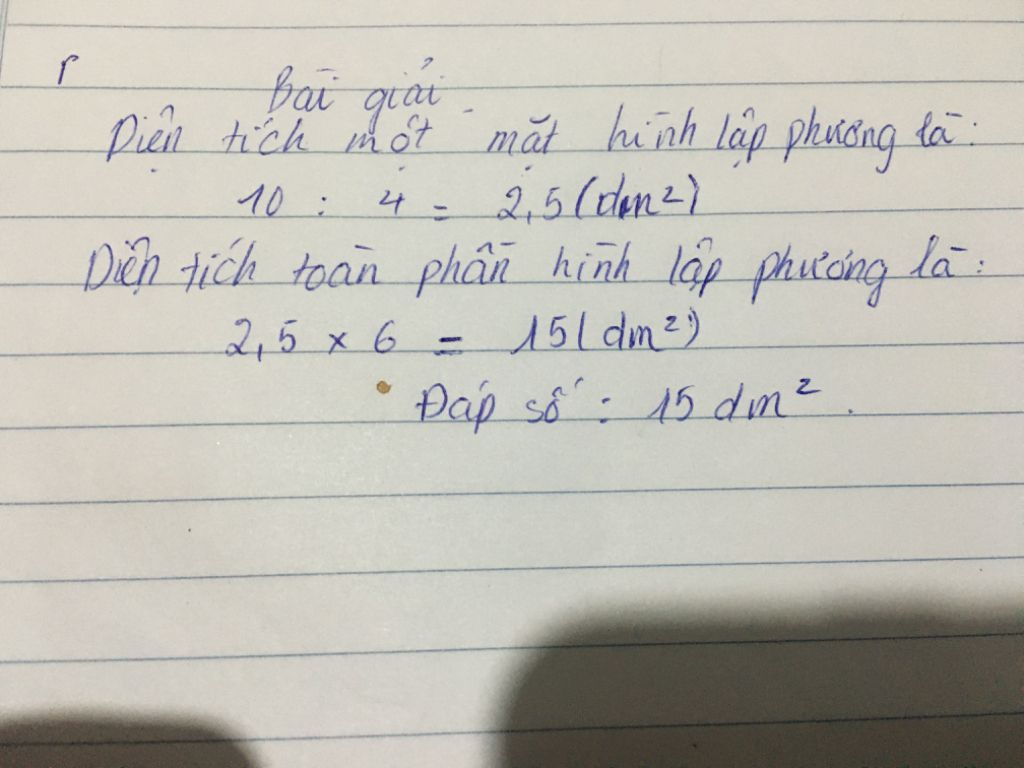 Bài giải
Diện tích một mặt hình lập phương là:
10 : 4 = 2,5 (dm²)
Diện tích toàn phần hình lập phương là:
2,5 × 6 = 15 (dm²)
Đáp số : 15 dm².